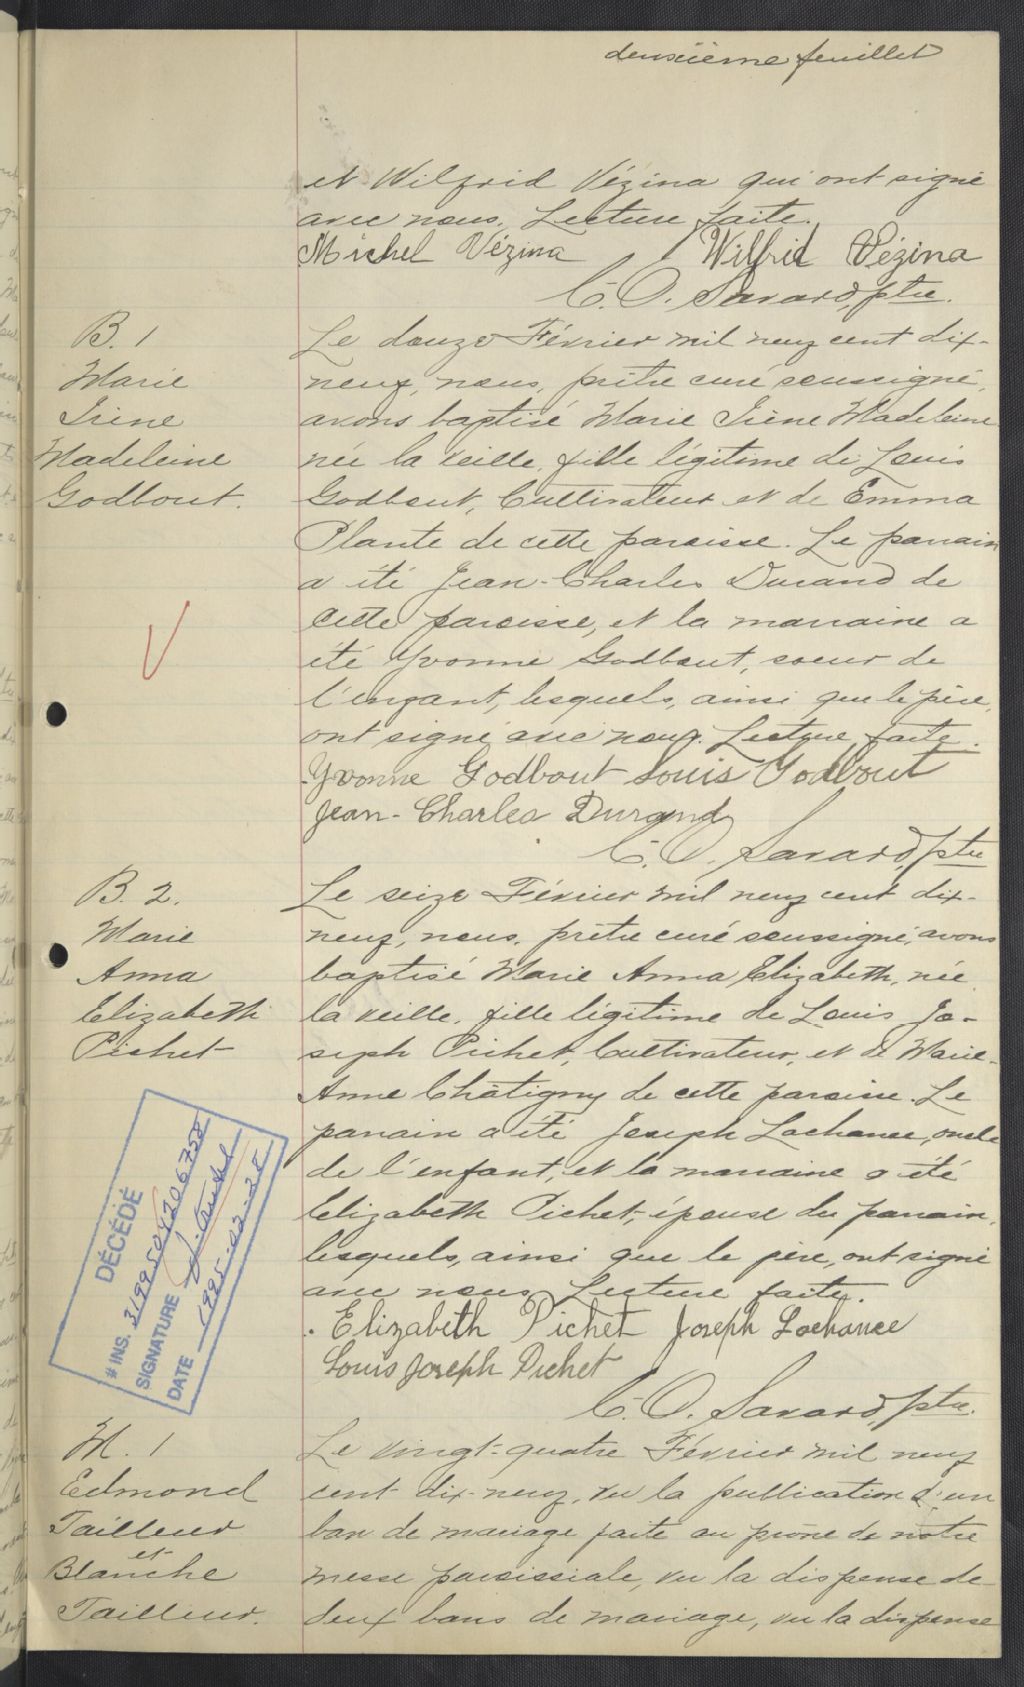 deuxième feuillet
et Wilfrid Vézina qui ont signé
avec nous. Lecture faite.
Michel Vézina Wilfrid Vézina
C. O. Savard, ptre.
B. 1
Marie
Irène
Madeleine
Godbout.
Le douze Février mil neuf cent dix-
neuf, nous, prêtre curé soussigné,
avons baptisé Marie Irène Madeleine
née la veille, fille légitime de Louis
Godbout, Cultivateur et de Emma
Plante de cette paroisse. Le parrain
a été Jean-Charles Durand de
cette paroisse, et la marraine a
été Yvonne Godbout, soeur de
l'enfant, lesquels, ainsi que le père,
ont signé avec nous. Lecture faite.
Yvonne Godbout Louis Godbout
Jean-Charles Durand
C. O. Savard, ptre
B. 2.
Marie
Anna
Elizabeth
Pichet
Le seize Février mil neuf cent dix-
neuf, nous, prêtre curé soussigné, avons
baptisé Marie Anna Elizabeth, née
la veille, fille légitime de Louis Jo-
seph Pichet, Cultivateur, et de Marie-
Anne Châtigny de cette paroisse. Le
parrain a été Joseph Lachance, oncle
de l'enfant, et la marraine a été
Elizabeth Pichet, épouse du parrain,
lesquels, ainsi que le père, ont signé
avec nous. Lecture faite.
Elizabeth Pichet Joseph Lachance
Louis Joseph Pichet
C. O. Savard, ptre.
DÉCÉDÉ
# INS. 3199504206758
SIGNATURE
DATE 1995-02-25
M. 1
Edmond
Tailleur
et
Blanche
Tailleur.
Le vingt-quatre Février mil neuf
cent dix-neuf, vu la publication d'un
ban de mariage faite au prône de notre
messe paroissiale, vu la dispense de
deux bans de mariage, vu la dispense